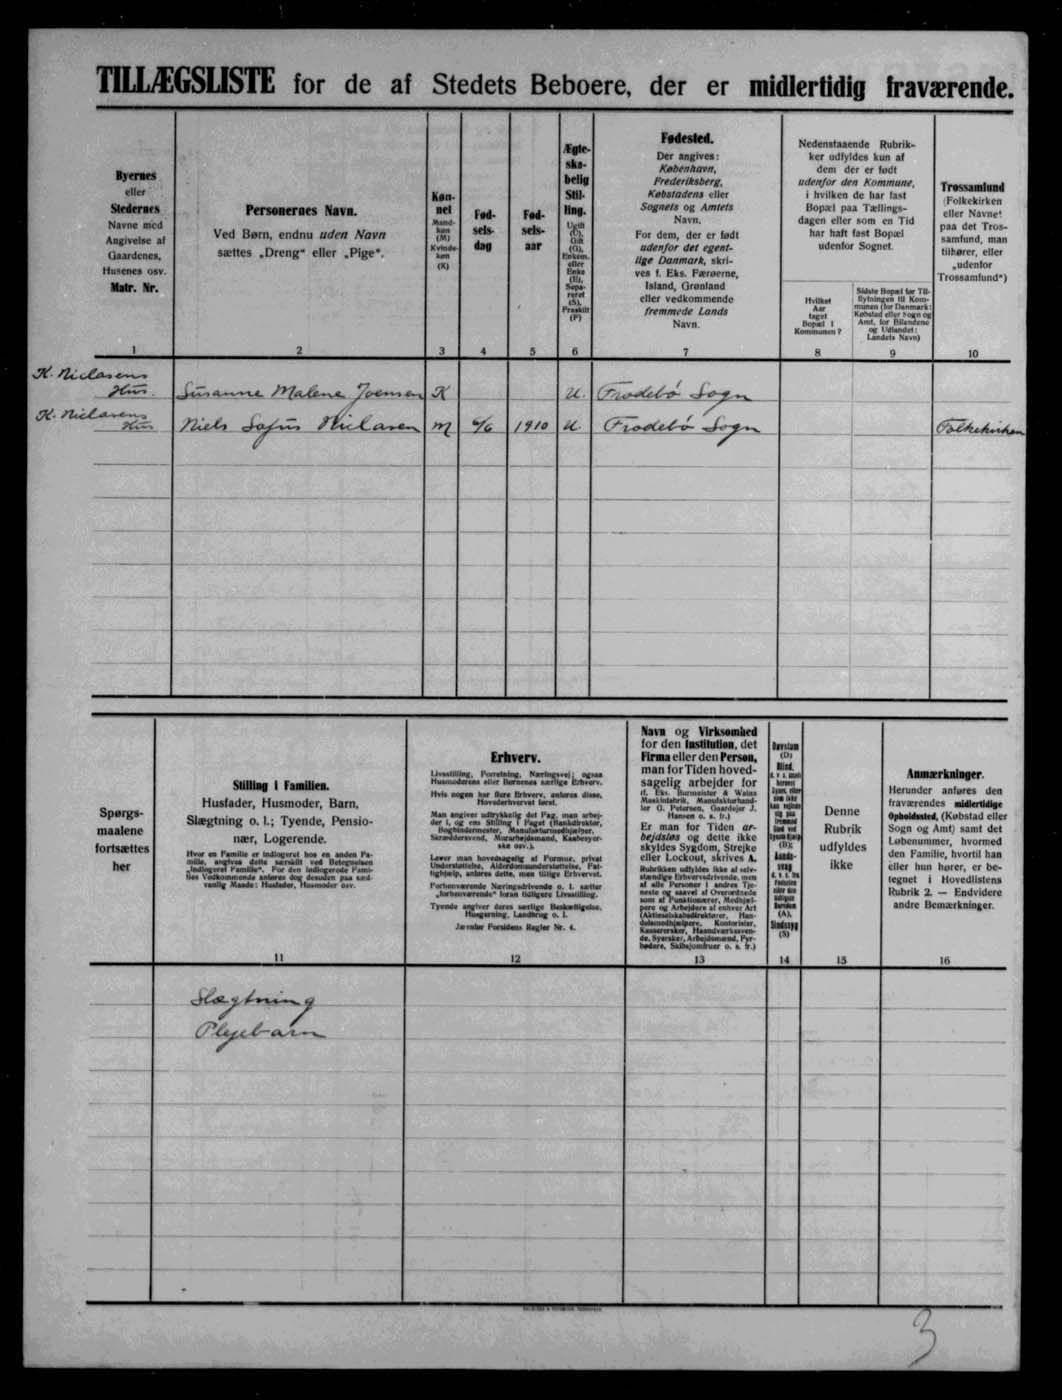 TILLÆGSLISTE for de af Stedets Beboere, der er midlertidig fraværende.
Byernes
eller
Stedernes
Navne med
Angivelse af
Gaardenes,
Husenes osv.
Matr. Nr.
1
Personernes Navn.
Ved Børn, endnu uden Navn
sættes „Dreng“ eller „Pige“.
2
Køn-
nel
Mand-
køn
(M)
Kvinde-
køn
(K)
3
Fød-
sels-
dag
4
Fød-
sels-
aar
5
Ægte-
ska-
belig
Stil-
ling.
Ugift
(U),
Gift
(G),
Enkem.
eller
Enke
(E),
Sepa-
reret
(S),
Fraskilt
(F)
6
Fødested.
Der angives:
København,
Frederiksberg,
Købstadens eller
Sognets og Amtets
Navn.
For dem, der er født
udenfor det egent-
lige Danmark, skri-
ves f. Eks. Færøerne,
Island, Grønland
eller vedkommende
fremmede Lands
Navn.
7
Nedenstaaende Rubrik-
ker udfyldes kun af
dem der er født
udenfor den Kommune,
i hvilken de har fast
Bopæl paa Tællings-
dagen eller som en Tid
har haft fast Bopæl
udenfor Sognet.
Hvilket
Aar
taget
Bopæl i
Kommunen?
8
Sidste Bopæl før Til-
flytningen til Kom-
munen (for Danmark:
Købstad eller Sogn og
Amt, for Bilandene
og Udlandet:
Landets Navn)
9
Trossamfund
(Folkekirken
eller Navnet
paa det Tros-
samfund, man
tilhører, eller
„udenfor
Trossamfund“)
10
K. Niclasens
Hus. Susanne Malene Joensen K U. Frodebø Sogn
K. Niclasens
Hus Niels Sofus Niclasen M 6/6 1910 U Frodebø Sogn Folkekirken
Spørgs-
maalene
fortsættes
her
Stilling i Familien.
Husfader, Husmoder, Barn,
Slægtning o. l.; Tyende, Pensio-
nær, Logerende.
Hvor en Familie er indlogeret hos en anden Fa-
milie, angives dette særskilt ved Betegnelsen
„Indlogeret Familie“. For den indlogerede Fami-
lies Vedkommende anføres dog desuden paa sæd-
vanlig Maade: Husfader, Husmoder osv.
11
Erhverv.
Livsstilling, Forretning, Næringsvej; ogsaa
Husmoderens eller Børnenes særlige Erhverv.
Hvis nogen har flere Erhverv, anføres disse,
Hovederhvervet først.
Man angiver udtrykkelig det Fag, man arbej-
der i, og ens Stilling i Faget (Bankdirektør,
Bogbindermester, Manufakturmedhjælper,
Skræddersvend, Murarbejdsmand, Kaabesyer-
ske osv.).
Lever man hovedsagelig af Formue, privat
Understøttelse, Alderdomsunderstøttelse, Fat-
tighjælp, anføres dette, men tillige Erhvervet.
Forhenværende Næringsdrivende o. l. sætter
„forhenværende“ foran tidligere Livsstilling.
Tyende angiver deres særlige Beskæftigelse,
Husgerning, Landbrug o. l.
Jævnfør Forsidens Regler Nr. 4.
12
Navn og Virksomhed
for den Institution, det
Firma eller den Person,
man for Tiden hoved-
sagelig arbejder for
(f. Eks. Burmeister & Wains
Maskinfabrik, Manufakturhand-
ler G. Petersen, Gaardejer J.
Hansen o. s. fr.)
Er man for Tiden ar-
bejdsløs og dette ikke
skyldes Sygdom, Strejke
eller Lockout, skrives A.
Rubrikken udfyldes ikke af selv-
stændige Erhvervsdrivende, men
af alle Personer i andres Tje-
neste og saavel af Overordnede
som af Funktionærer, Medhjæl-
pere og Arbejdere af enhver Art
(Aktieselskabsdirektører, Han-
delsmedhjælpere, Kontorister,
Kasserersker, Haandværkssven-
de, Syersker, Arbejdsmænd, Fyr-
bødere, Skibsjomfruer o. s. fr.)
13
Døvstum
(D)
Blind,
(B);
Aands-
svag
(A),
Sindssyg
(S)
14
Denne
Rubrik
udfyldes
ikke
15
Anmærkninger.
Herunder anføres den
fraværendes midlertidige
Opholdssted, (Købstad eller
Sogn og Amt) samt det
Løbenummer, hvormed
den Familie, hvortil han
eller hun hører, er be-
tegnet i Hovedlistens
Rubrik 2. — Endvidere
andre Bemærkninger.
16
Slægtning
Plejebarn
3